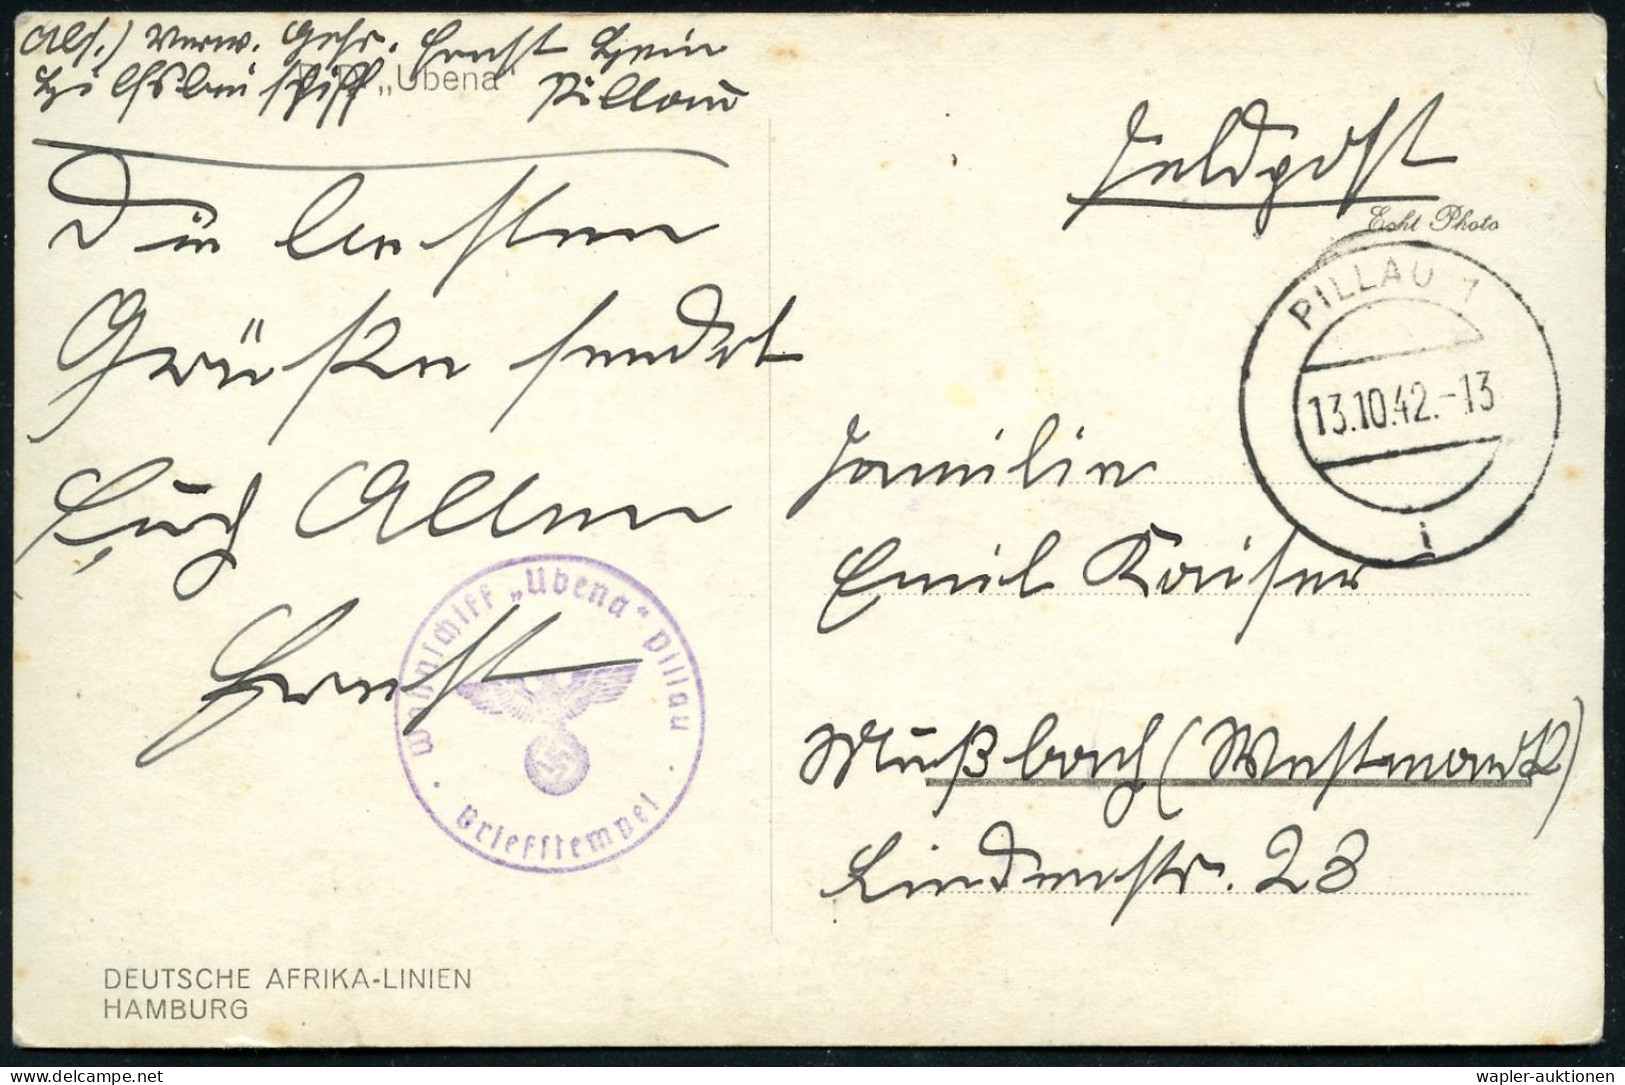 Abs.) Verw. Gefr. Ernst Hein
„Ubena“ Pillau
Die besten
Grüße sendet
Euch Allen
Ernst
Wohnschiff „Ubena“ Pillau
Briefstempel
DEUTSCHE AFRIKA-LINIEN
HAMBURG
Feldpost
Echt Photo
PILLAU 1
13.10.42.-13
i
Familie
Emil Kaiser
Mußbach (Westmark)
Lindenstr. 28
delcampe.net
wapler-auktionen